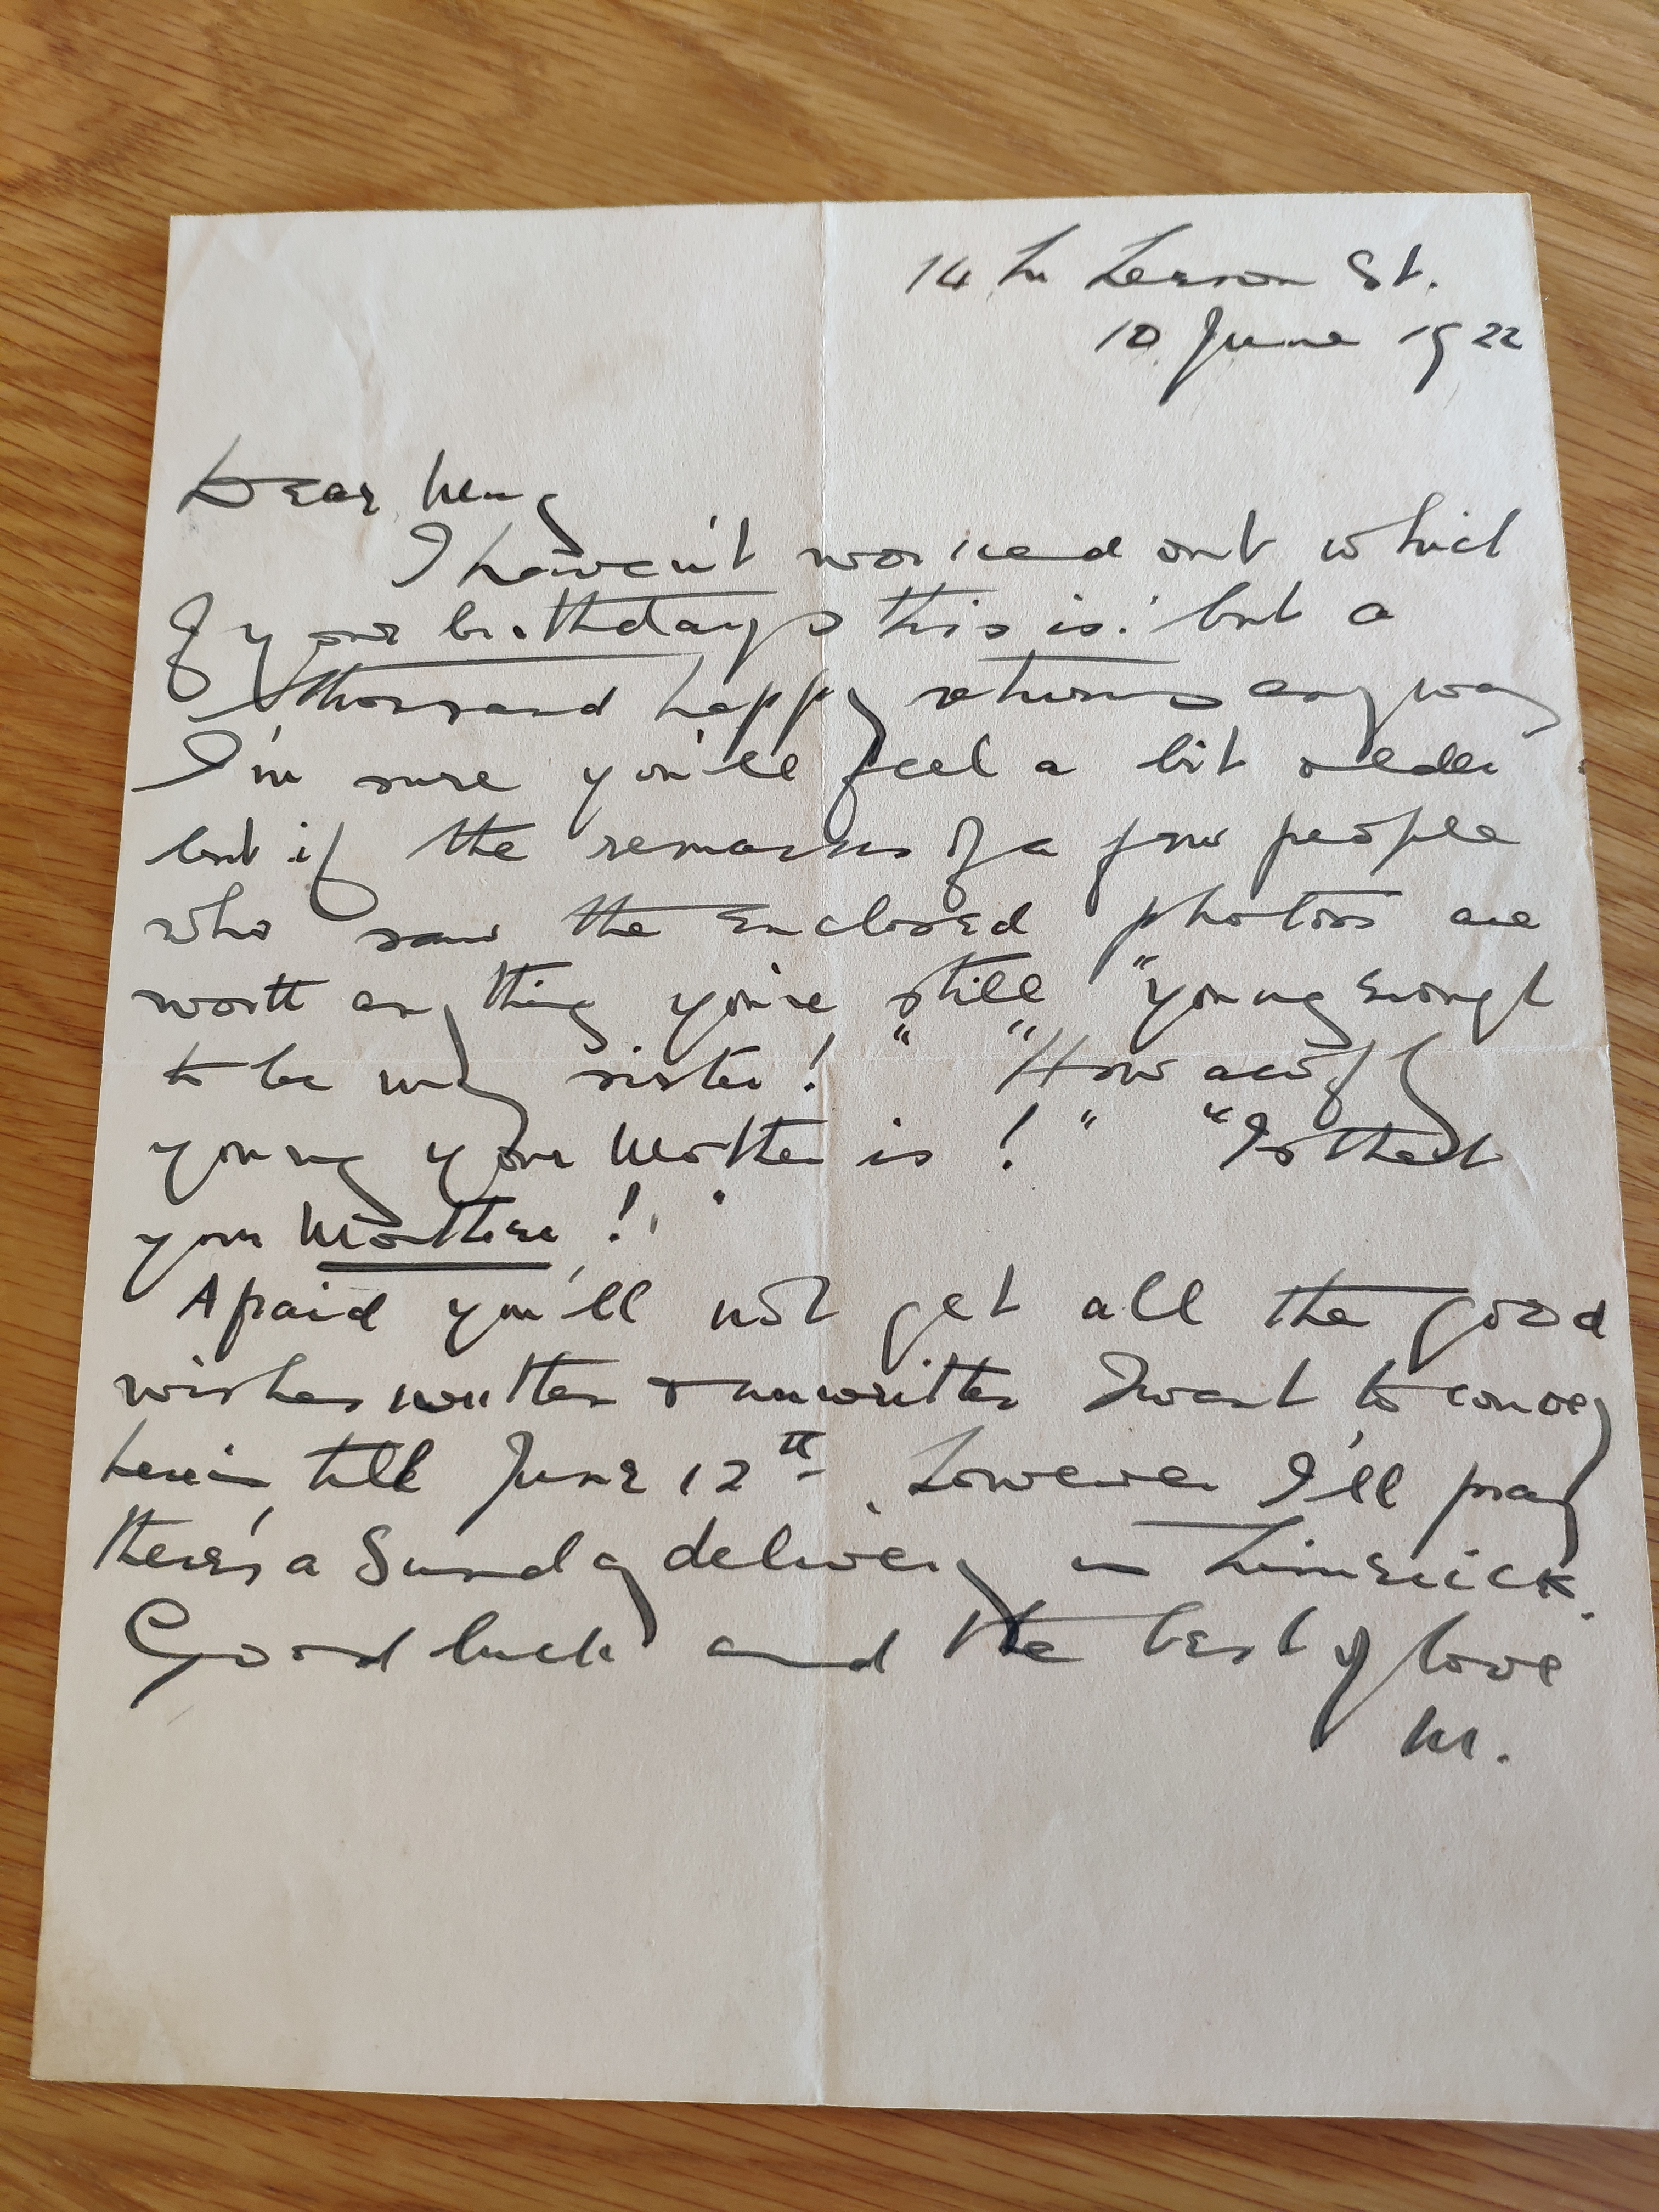 14 Lr Leeson St.
10 June 1922
Dear
I haven't worked out which
of your birthdays this is: but a
thousand happy returns anyway
I'm sure you'll feel a bit older
but if the remarks of a few people
who saw the enclosed photos are
worth anything you're still "young enough
to be my sister!" "How awfully
young your Mother is!" "Is that
your Mother!"
Afraid you'll not get all the good
wishes written & unwritten I want to convey
herein till June 12th. However I'll pray
there's a Sunday delivery in Limerick.
Good luck and the best of love
M.